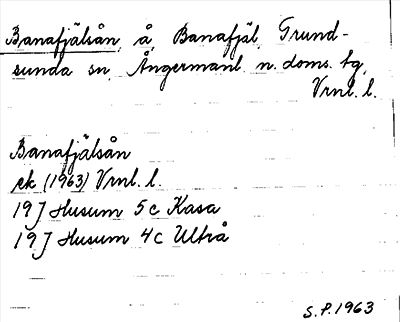 Banafjälsån, å, Banafjäl, Grund-
sunda sn, Ångermanl. n. doms. tg,
Vrnl. l.
Banafjälsån
ek (1963) Vrnl. l.
19J Husum 5c Kasa
19J Husum 4c Ultrå
S.P. 1963